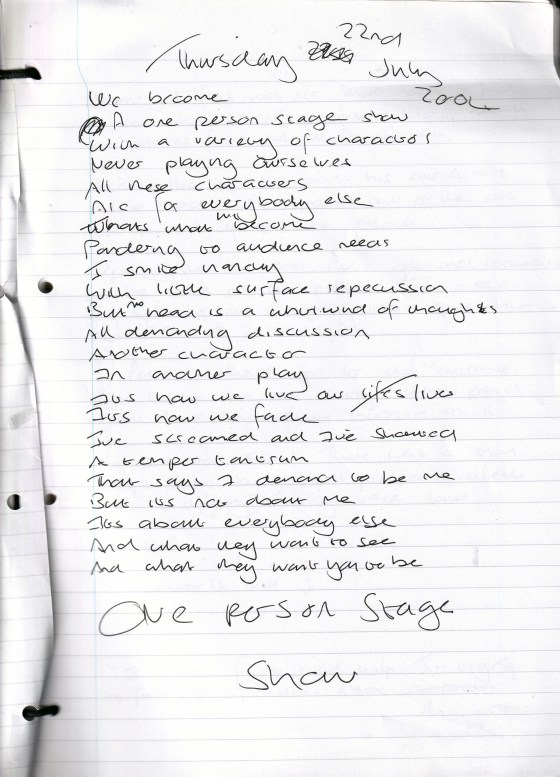 22nd
Thursday July
2004
We become
A one person stage show
With a variety of characters
Never playing ourselves
All these characters
Are for everybody else
Thats what become
Pandering to audience needs
I smile
With little surface repecussion
But my head is a whirlwind of thoughts
All demanding discussion
Another character
In another play
Its how we live our lifes lives
Its how we fade
Ive screamed and Ive shouted
A temper tantrum
That says I demand to be me
But its not about me
Its about everybody else
And what they want to see
And what they want you to be
One person Stage
Show